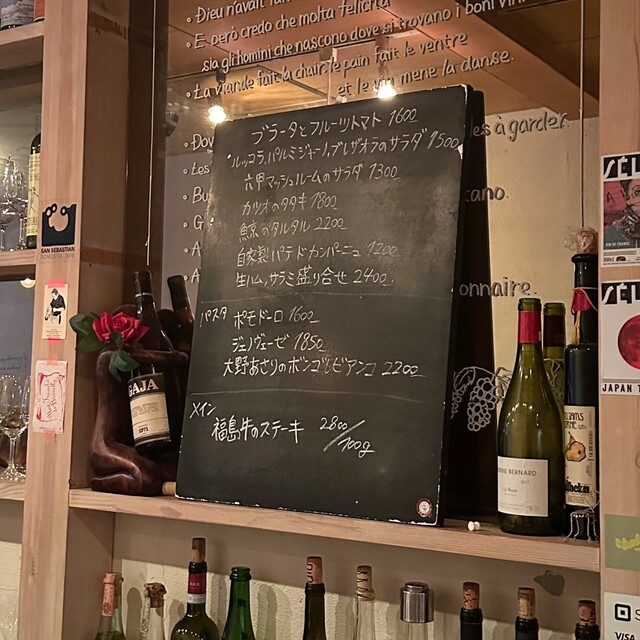 • Dieu n'avait fa
• E però credo che molta felicità
sia agli homini che nascono dove si trovano i boni vini
• La viande fait la chair, le pain fait le ventre
et le vin mene la danse.
ブラータとフルーツトマト 1600
ルッコラ、パルミジャーノ、ブレザオラのサラダ 1500
六甲マッシュルームのサラダ 1300
カツオのタタキ 1800
鯨のタルタル 2200
自家製パテドカンパーニュ 1200
生ハム、サラミ盛り合せ 2400
パスタ ポモドーロ 1600
ジェノヴェーゼ 1850
大野あさりのボンゴレビアンコ 2200
メイン
福島牛のステーキ 2800/100g
à garder.
ano.
onnaire.
SAN SEBASTIAN
GAJA
BERNARD
SÉL
SÉL
JAPAN T
VISA